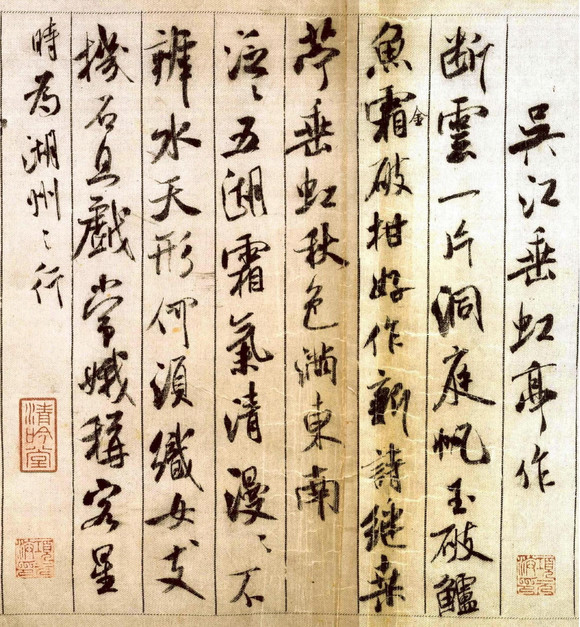 吳江垂虹亭作
断雲一片洞庭帆玉破鱸
魚霜金破柑好作新詩繼桑
苧垂虹秋色滿東南
泛〻五湖霜氣清漫〻不
辨水天形何須織女支
機石且戲常娥稱客星
時為湖州之行
清吟堂